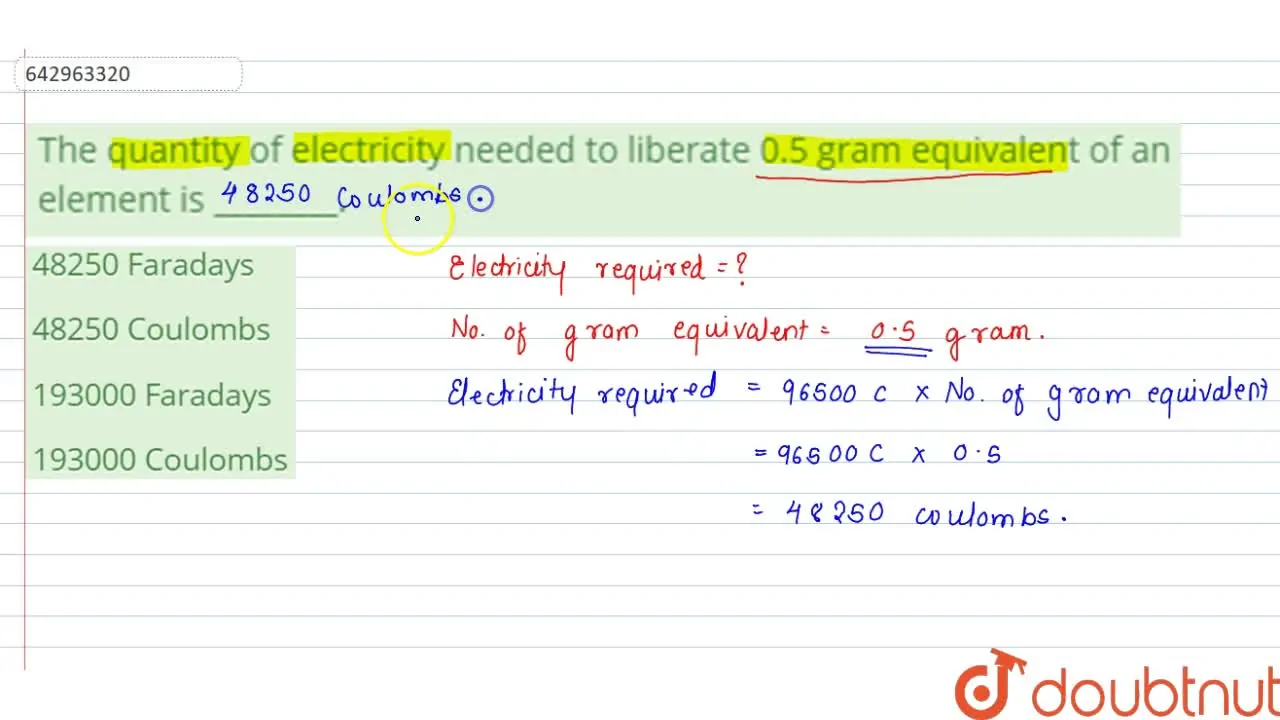 642963320
The quantity of electricity needed to liberate 0.5 gram equivalent of an
element is ________. 48250 Coulombs
48250 Faradays
48250 Coulombs
193000 Faradays
193000 Coulombs
Electricity required = ?
No. of gram equivalent = 0.5 gram.
Electricity required = 96500 C × No. of gram equivalent
= 96500 C × 0.5
= 48250 coulombs.
doubtnut